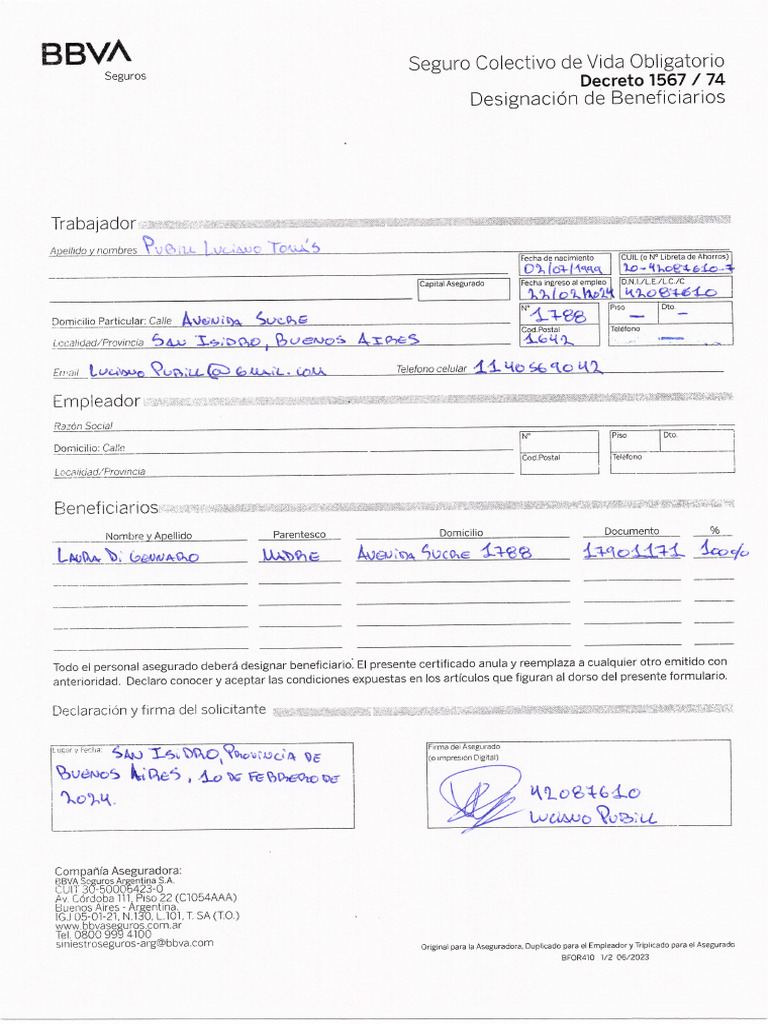 BBVA
Seguros
Seguro Colectivo de Vida Obligatorio
Decreto 1567 / 74
Designación de Beneficiarios
Trabajador
Apellido y nombres PUBILL LUCIANO TOMÁS
Fecha de nacimiento 02/07/1999 CUIL (o Nº Libreta de Ahorros) 20-42087610-7
Capital Asegurado Fecha ingreso al empleo 22/02/2024 D.N.I./L.E./L.C./C 42087610
Domicilio Particular: Calle AVENIDA SUCRE Nº 1788 Piso — Dto. —
Localidad/Provincia SAN ISIDRO, BUENOS AIRES Cod.Postal 1642 Teléfono —
Email LUCIANO PUBILL@GMAIL.COM Telefono celular 1140569042
Empleador
Razón Social
Domicilio: Calle Nº Piso Dto.
Localidad/Provincia Cod.Postal Teléfono
Beneficiarios
Nombre y Apellido Parentesco Domicilio Documento %
LAURA DI GENNARO MADRE AVENIDA SUCRE 1788 17901171 100%
Todo el personal asegurado deberá designar beneficiario. El presente certificado anula y reemplaza a cualquier otro emitido con
anterioridad. Declaro conocer y aceptar las condiciones expuestas en los artículos que figuran al dorso del presente formulario.
Declaración y firma del solicitante
Lugar y Fecha: SAN ISIDRO, PROVINCIA DE
BUENOS AIRES, 10 DE FEBRERO DE
2024.
Firma del Asegurado
(o impresión Digital)
42087610
LUCIANO PUBILL
Compañía Aseguradora:
BBVA Seguros Argentina S.A.
CUIT 30-50006423-0
Av. Córdoba 111, Piso 22 (C1054AAA)
Buenos Aires - Argentina.
IGJ 05-01-21, N.130, L.101, T. SA (T.O.)
www.bbvaseguros.com.ar
Tel. 0800 999 4100
siniestroseguros-arg@bbva.com
Original para la Aseguradora, Duplicado para el Empleador y Triplicado para el Asegurado
BFOR410 1/2 06/2023